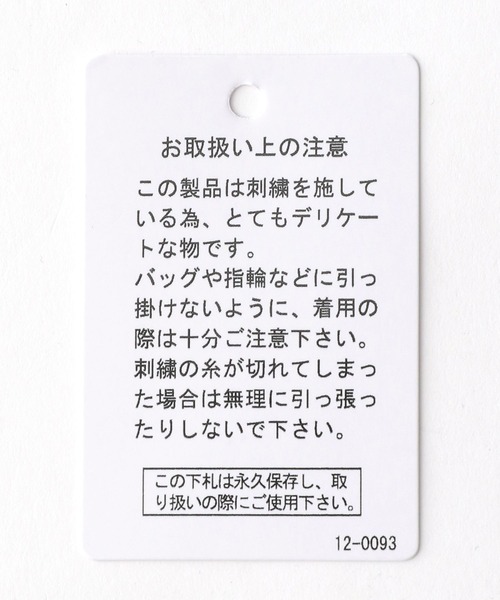 お取扱い上の注意
この製品は刺繍を施して
いる為、とてもデリケー
トな物です。
バッグや指輪などに引っ
掛けないように、着用の
際は十分ご注意下さい。
刺繍の糸が切れてしまっ
た場合は無理に引っ張っ
たりしないで下さい。
この下札は永久保存し、取
り扱いの際にご使用下さい。
12-0093